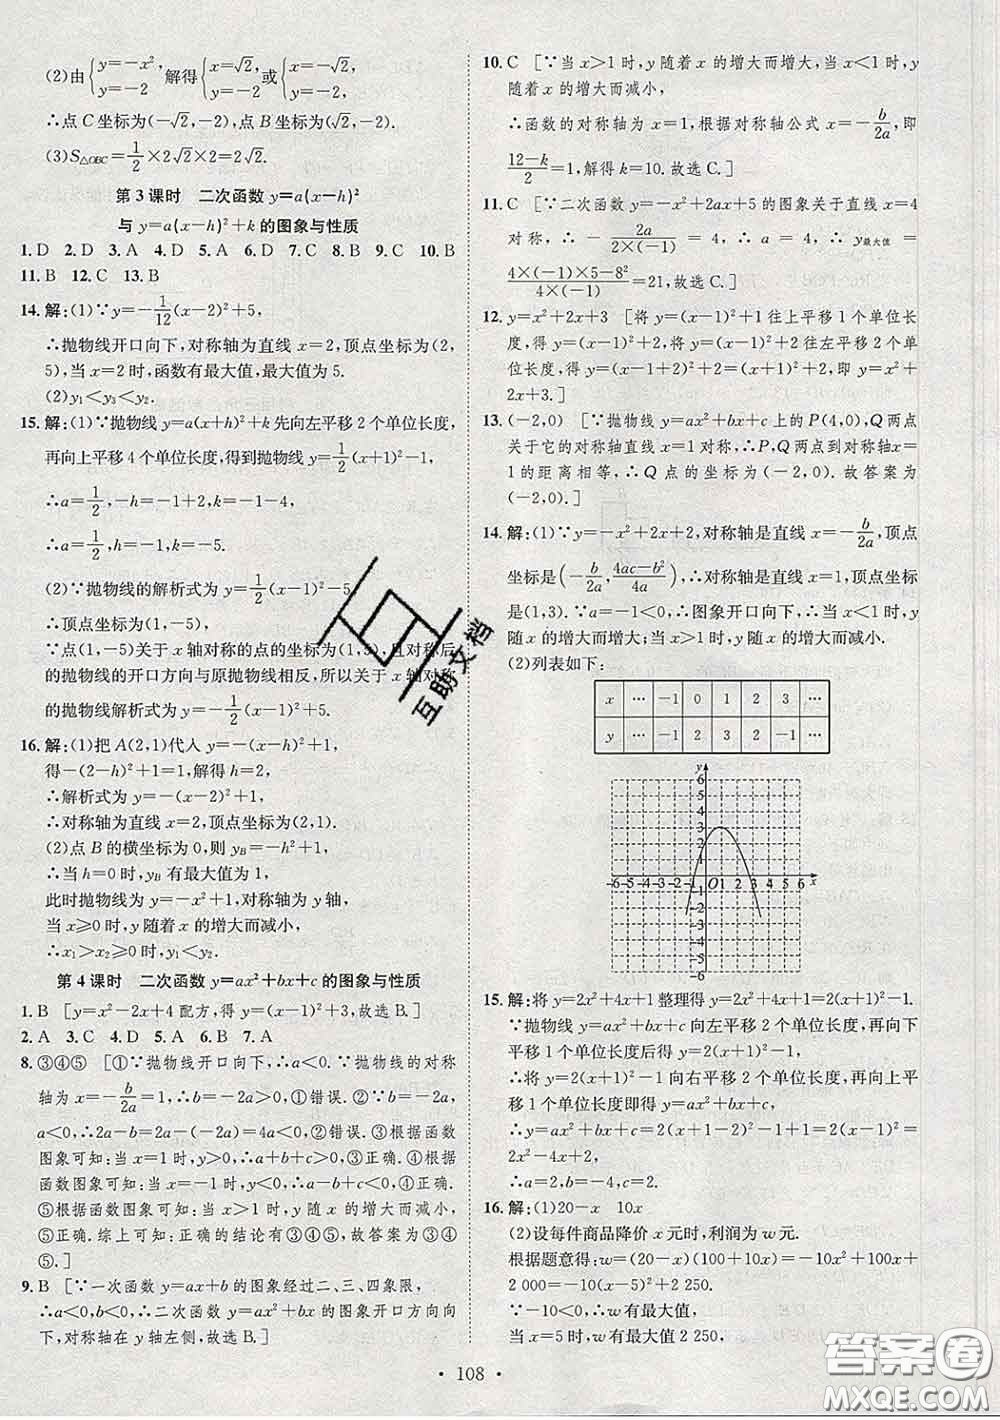 (2)由{y=-x², y=-2 解得{x=√2, y=-2 或{x=-√2, y=-2,
∴点C坐标为(-√2,-2),点B坐标为(√2,-2).
(3)S△OBC=1/2×2√2×2=2√2.
第3课时 二次函数y=a(x-h)²
与y=a(x-h)²+k的图象与性质
1.D 2.D 3.A 4.D 5.A 6.D 7.D 8.D 9.C 10.B
11.B 12.C 13.B
14.解:(1)∵y=-1/12(x-2)²+5,
∴抛物线开口向下,对称轴为直线x=2,顶点坐标为(2,
5),当x=2时,函数有最大值,最大值为5.
(2)y₁<y₃<y₂.
15.解:(1)∵抛物线y=a(x+h)²+k先向左平移2个单位长度,
再向上平移4个单位长度,得到抛物线y=1/2(x+1)²-1,
∴a=1/2,h=-1+2,k=-1-4,
∴a=1/2,h=-1,k=-5.
(2)∵抛物线的解析式为y=1/2(x-1)²-5,
∴顶点坐标为(1,-5),
∵点(1,-5)关于x轴对称的点的坐标为(1,5),且对称后
的抛物线的开口方向与原抛物线相反,所以关于x轴对称
的抛物线解析式为y=-1/2(x-1)²+5.
16.解:(1)把A(2,1)代入y=-(x-h)²+1,
得-(2-h)²+1=1,解得h=2,
∴解析式为y=-(x-2)²+1,
∴对称轴为直线x=2,顶点坐标为(2,1).
(2)点B的横坐标为0,则y_B=-h²+1,
∴当h=0时,y_B有最大值为1,
此时抛物线为y=-x²+1,对称轴为y轴,
当x≥0时,y随着x的增大而减小,
∴x₁>x₂≥0时,y₁<y₂.
第4课时 二次函数y=ax²+bx+c的图象与性质
1.B [y=x²-2x+4配方,得y=(x-1)²+3,故选B.]
2.A 3.C 4.D 5.A 6.B 7.A
8.③④⑤ [①∵抛物线开口向下,∴a<0.∵抛物线的对称
轴为x=-b/2a=1,∴b=-2a>0,①错误.②∵b=-2a,
a<0,∴2a-b=2a-(-2a)=4a<0,②错误.③根据函数
图象可知:当x=1时,y>0,∴a+b+c>0,③正确.④根据
函数图象可知:当x=-1时,y=0,∴a-b+c=0,④正确.
⑤根据函数图象可知:当x>1时,y随x的增大而减小,
⑤正确.综上可知:正确的结论有③④⑤,故答案为③④
⑤.]
9.B [∵一次函数y=ax+b的图象经过二、三、四象限,
∴a<0,b<0,∴二次函数y=ax²+bx的图象开口方向向
下,对称轴在y轴左侧,故选B.]
10.C [∵当x>1时,y随着x的增大而增大,当x<1时,y
随着x的增大而减小,
∴函数的对称轴为x=1,根据对称轴公式x=-b/2a,即
(12-k)/2=1,解得k=10.故选C.]
11.C [∵二次函数y=-x²+2ax+5的图象关于直线x=4
对称,∴-2a/(2×(-1))=4,∴a=4,∴y最大值=
(4×(-1)×5-8²)/(4×(-1))=21,故选C.]
12.y=x²+2x+3 [将y=(x-1)²+1往上平移1个单位长
度,得y=(x-1)²+2,将y=(x-1)²+2往左平移2个单
位长度,得y=(x-1+2)²+2=(x+1)²+2,即y=x²+
2x+3.]
13.(-2,0) [∵抛物线y=ax²+bx+c上的P(4,0),Q两点
关于它的对称轴直线x=1对称,∴P,Q两点到对称轴x=
1的距离相等,∴Q点的坐标为(-2,0).故答案为
(-2,0).]
14.解:(1)∵y=-x²+2x+2,对称轴是直线x=-b/2a,顶点
坐标是(-b/2a,(4ac-b²)/4a),∴对称轴是直线x=1,顶点坐标
是(1,3).∵a=-1<0,∴图象开口向下,∴当x<1时,y
随x的增大而增大;当x>1时,y随x的增大而减小.
(2)列表如下:
x … -1 0 1 2 3 …
y … -1 2 3 2 -1 …
y
6
5
4
3
2
1
-6-5-4-3-2-1 O 1 2 3 4 5 6 x
-1
-2
-3
-4
-5
-6
15.解:将y=2x²+4x+1整理得y=2x²+4x+1=2(x+1)²-1.
∵抛物线y=ax²+bx+c向左平移2个单位长度,再向下
平移1个单位长度后得y=2x²+4x+1=2(x+1)²-1,
∴将y=2(x+1)²-1向右平移2个单位长度,再向上平移
1个单位长度即得y=ax²+bx+c,
∴y=ax²+bx+c=2(x+1-2)²-1+1=2(x-1)²=
2x²-4x+2,
∴a=2,b=-4,c=2.
16.解:(1)20-x 10x
(2)设每件商品降价x元时,利润为w元.
根据题意得:w=(20-x)(100+10x)=-10x²+100x+
2 000=-10(x-5)²+2 250,
∵-10<0,∴w有最大值,
当x=5时,w有最大值2 250,
• 108 •
互助文档
答案圈
MXQE.COM